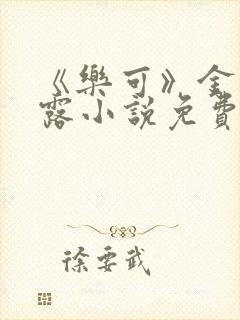 《樂可》金
露小說免費
徐要武